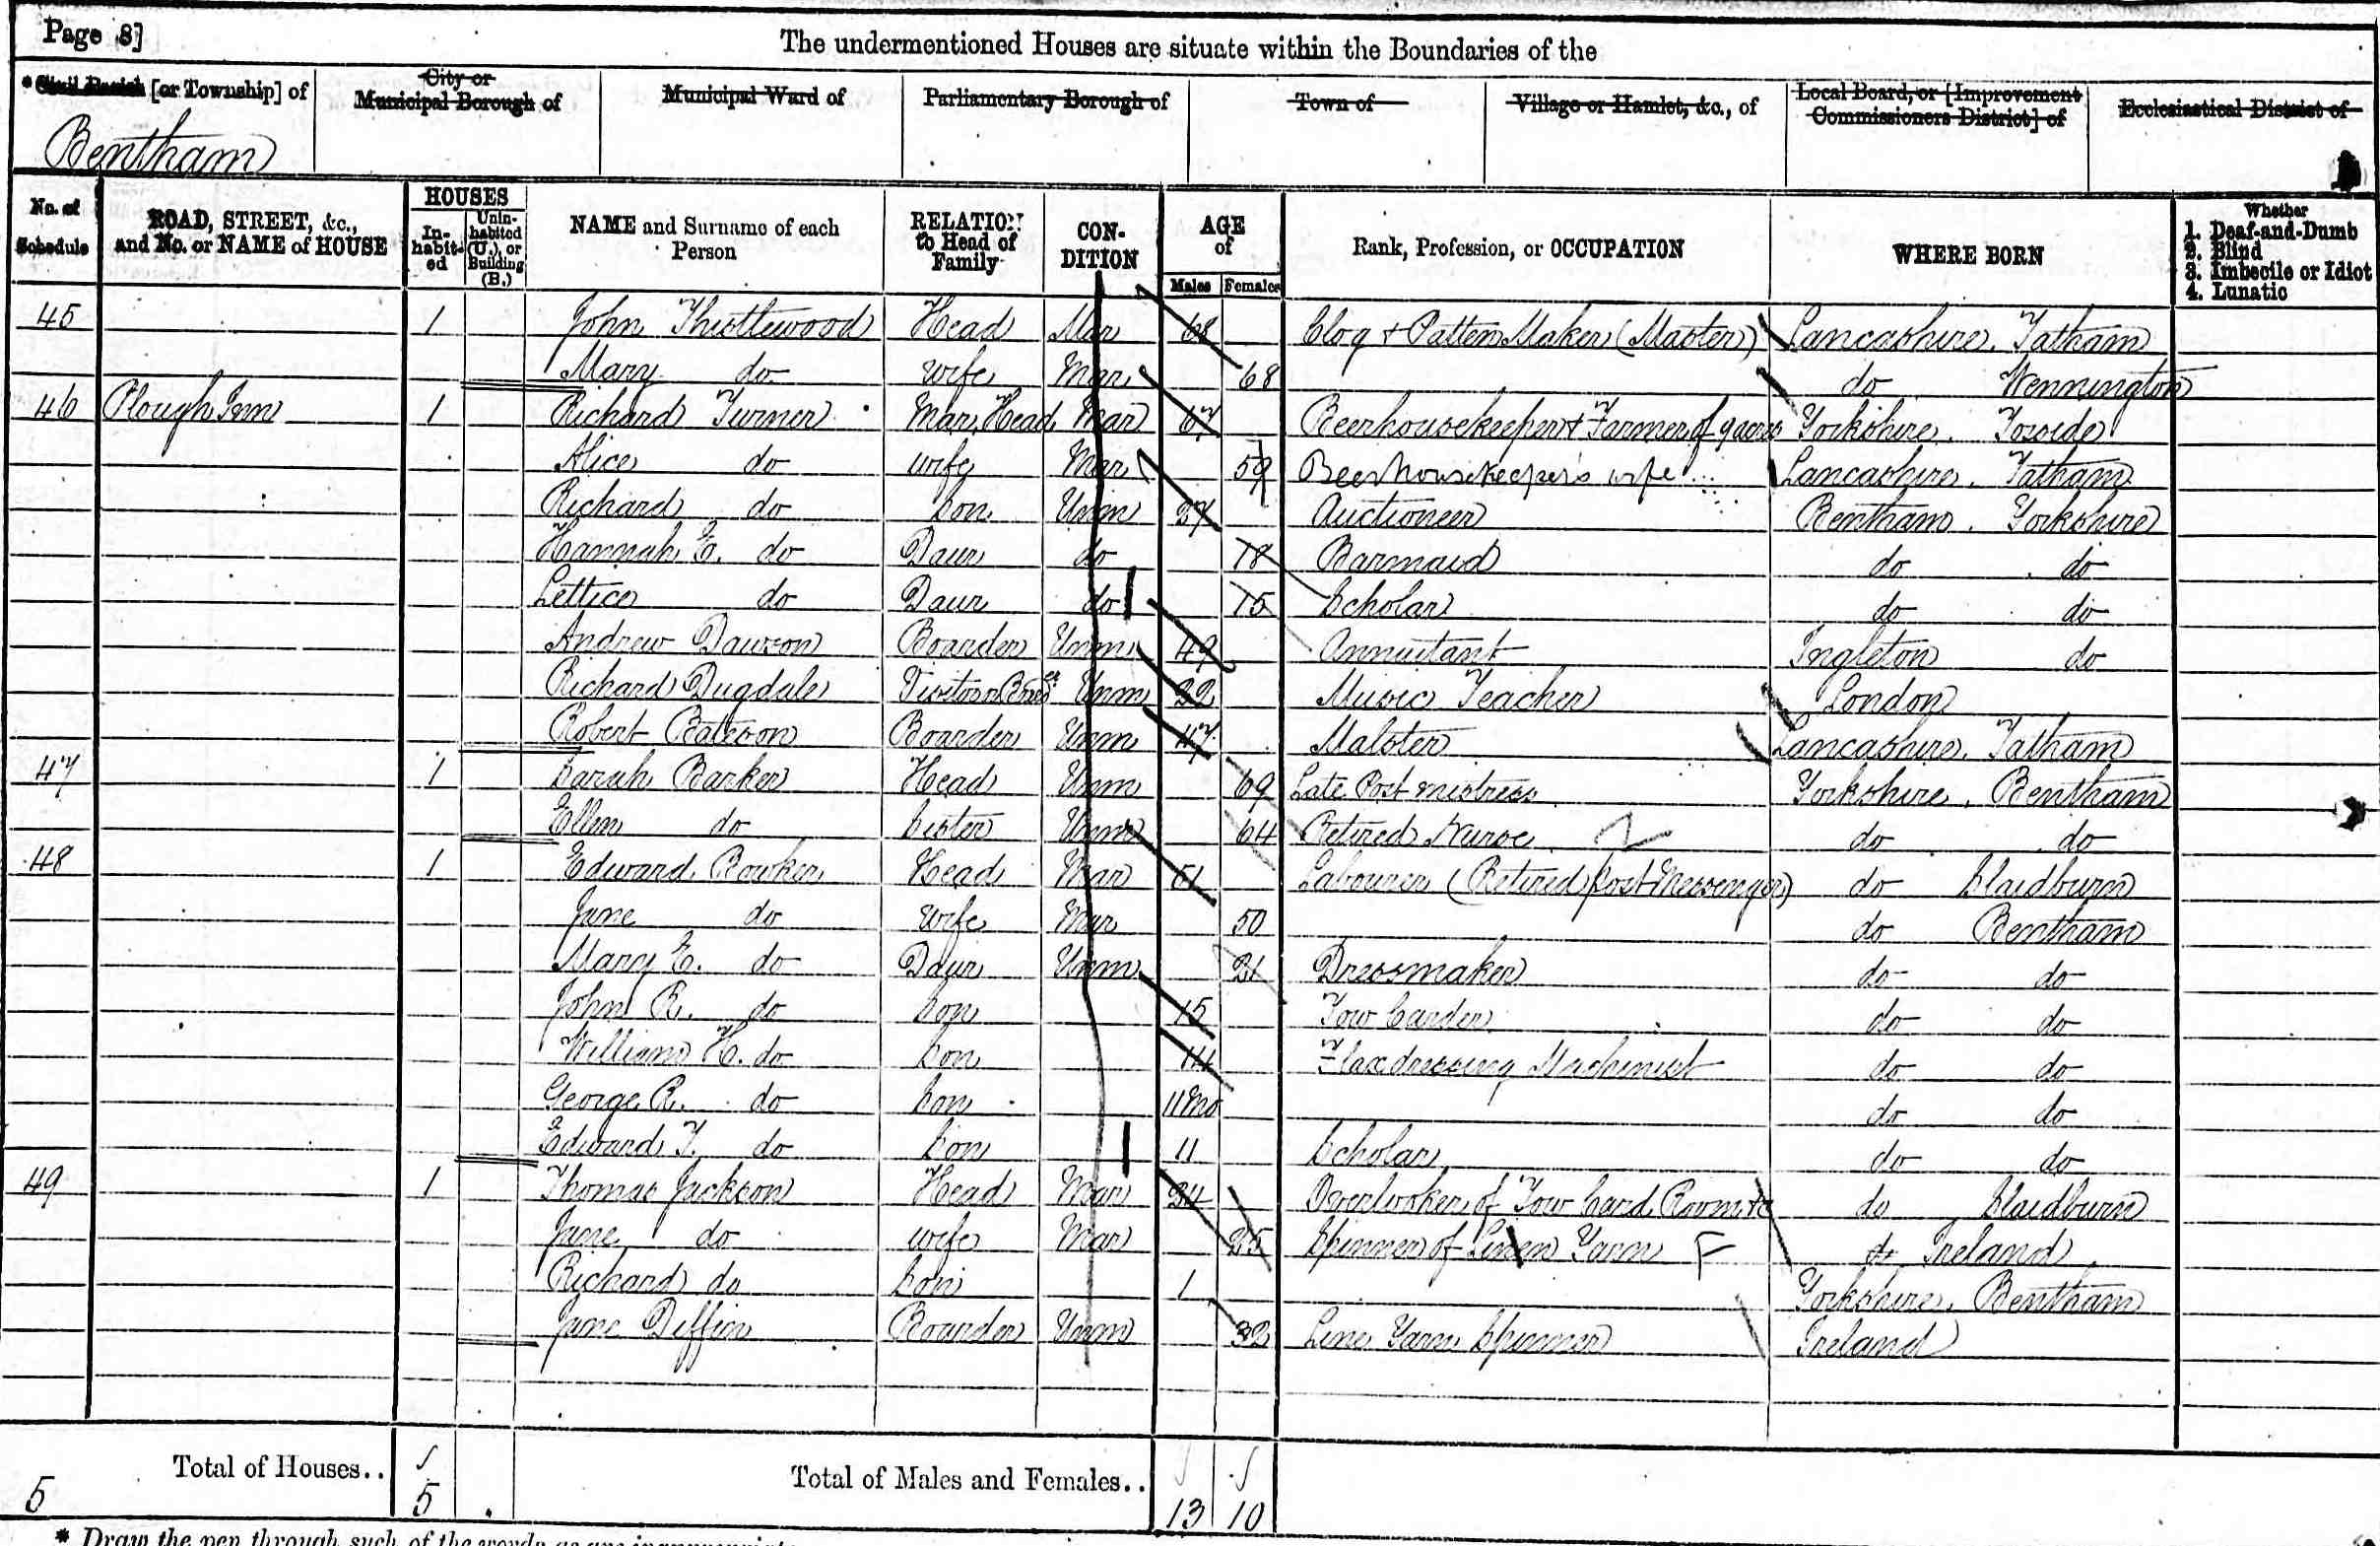 Page 8]
The undermentioned Houses are situate within the Boundaries of the
* Civil Parish [or Township] of
City or Municipal Borough of
Municipal Ward of
Parliamentary Borough of
Town of
Village or Hamlet, &c., of
Local Board, or [Improvement Commissioners District] of
Ecclesiastical District of
Bentham
No. of Schedule
ROAD, STREET, &c., and No. or NAME of HOUSE
HOUSES
Inhabited
Uninhabited (U.), or Building (B.)
NAME and Surname of each Person
RELATION to Head of Family
CONDITION
AGE of
Males
Females
Rank, Profession, or OCCUPATION
WHERE BORN
Whether
1. Deaf-and-Dumb
2. Blind
3. Imbecile or Idiot
4. Lunatic
45 1 John Thistlewood Head Mar 68 Clog & Patten Maker (Master) Lancashire. Tatham
Mary do wife Mar 68 do Wennington
46 Plough Inn 1 Richard Turner Mar, Head Mar 67 Beerhousekeeper & Farmer of 9 acres Yorkshire. Toside
Alice do wife Mar 59 Beerhousekeeper's wife Lancashire. Tatham
Richard do Son Unm 27 Auctioneer Bentham. Yorkshire
Hannah E. do Daur do 18 Barmaid do do
Lettice do Daur do 15 Scholar do do
Andrew Dawson Boarder Unm 49 Annuitant Ingleton do
Richard Dugdale Visitor Unm 22 Music Teacher London
Robert Bateson Boarder Unm 47 Malster Lancashire. Tatham
47 1 Sarah Barker Head Unm 69 Late Post mistress Yorkshire. Bentham
Ellen do Sister Unm 64 Retired Nurse do do
48 1 Edward Bowker Head Mar 51 Labourer (Retired post Messenger) do Slaidburn
Jane do wife Mar 50 do Bentham
Mary E. do Daur Unm 21 Dressmaker do do
John R. do Son 15 Tow Carder do do
William H. do Son 14 Flaxdressing Machinist do do
George R. do Son 11 mo do do
Edward T. do Son 11 Scholar do do
49 1 Thomas Jackson Head Mar 24 Overlooker of Tow Card Room &c do Slaidburn
Jane do wife Mar 25 Spinner of Linen Yarn F do Ireland
Richard do Son 1 Yorkshire. Bentham
Jane Diffin Boarder Unm 32 Line Yarn Spinner Ireland
5 Total of Houses.. 5 Total of Males and Females.. 13 10
* Draw the pen through such of the words as are